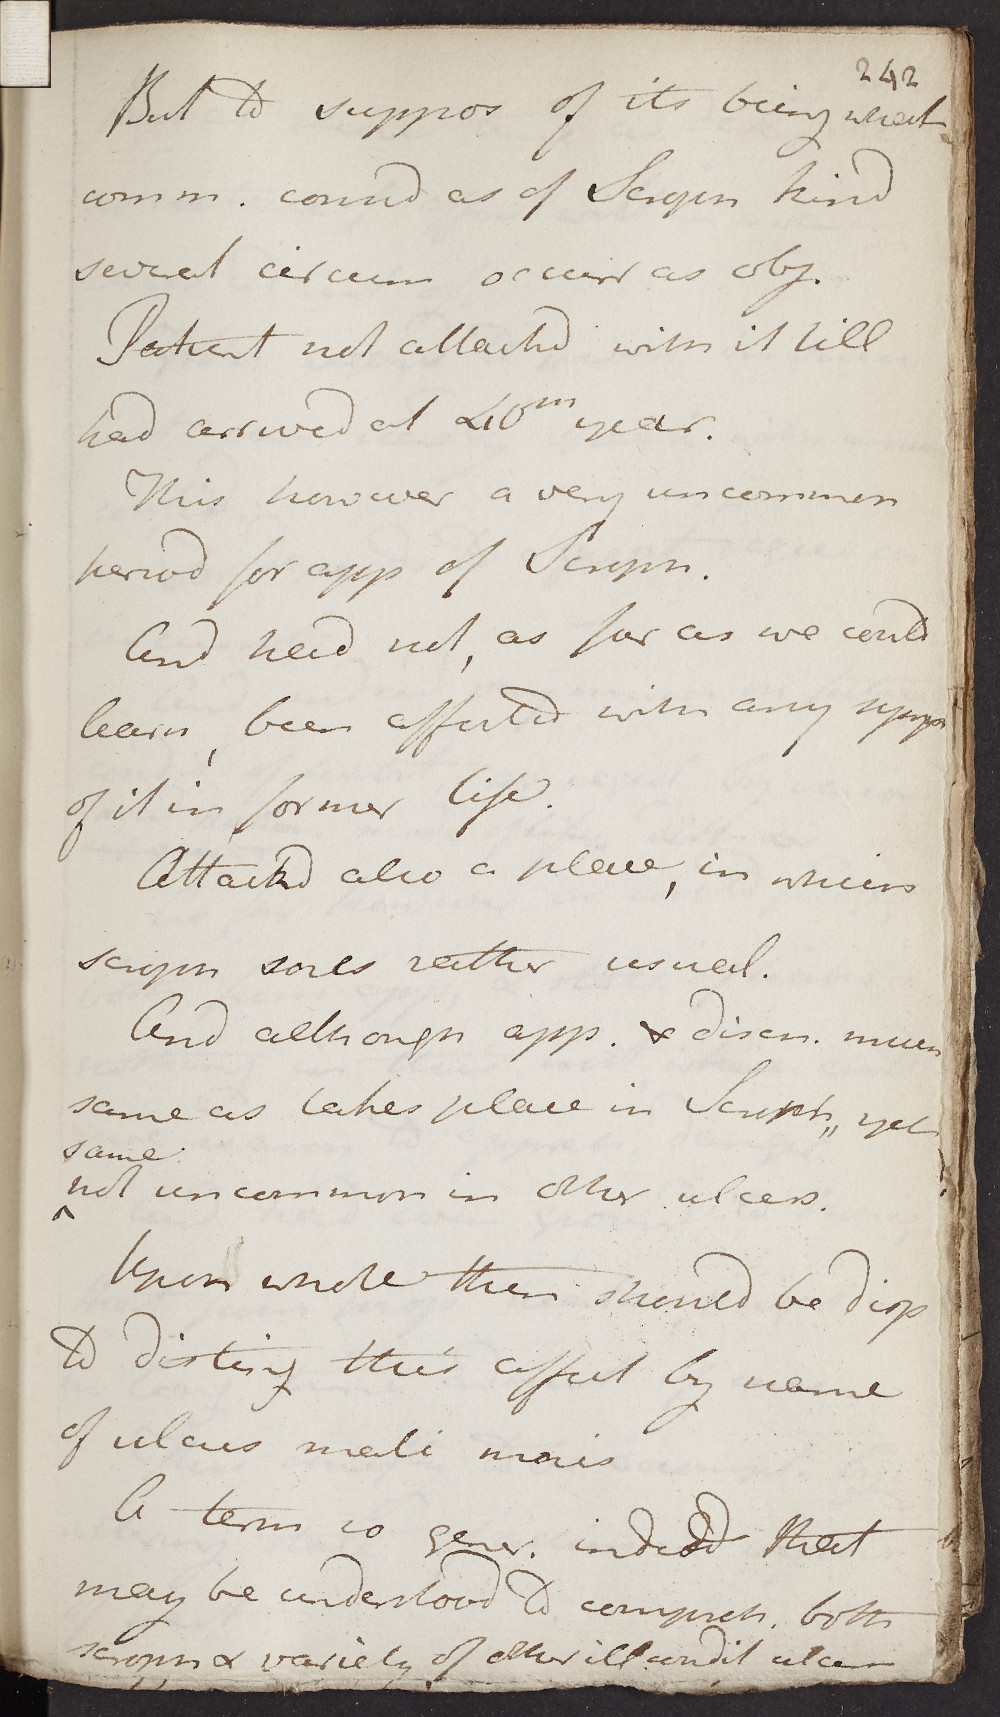 242
But to suppos of its being what
comm. consid as of Scropn kind
several circum occurr as obj.
Patient not attackd with it till
had arrived at 40th year.
This however a very uncommon
period for app of Scropn.
And had not, as far as we could
learn, been affected with any symp
of it in former life.
Attackd also a place, in which
scropn sores rather usual.
And although app. & disch. much
same as takes place in Scroph, yet
same
not uncommon in other ulcers.
Upon whole then should be disp
to disting this affect by name
of ulcus mali moris
A term so gener. indeed that
may be understood to compreh. both
scropn & variety of other ill condit ulcer